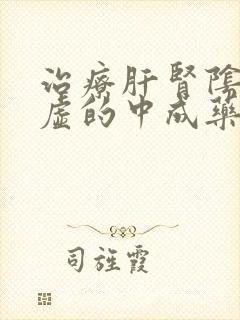 治療肝腎陰
虛的中成藥
司旌霞